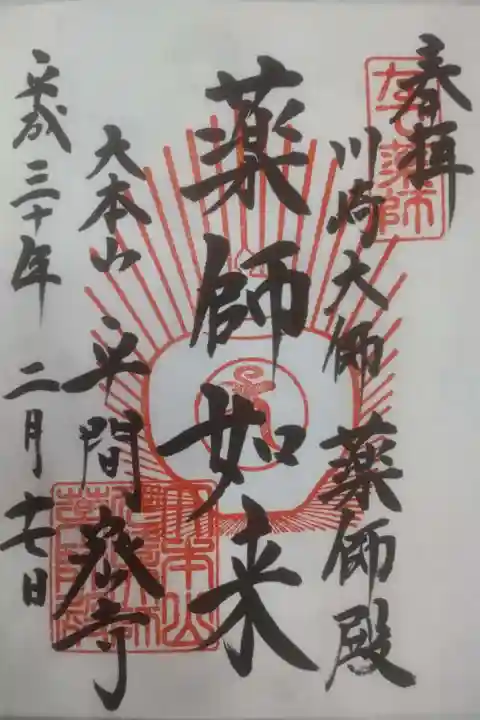 奉拝
なで薬師
川崎大師 薬師殿
薬師如来
大本山 平間寺
平成三十年 二月十七日